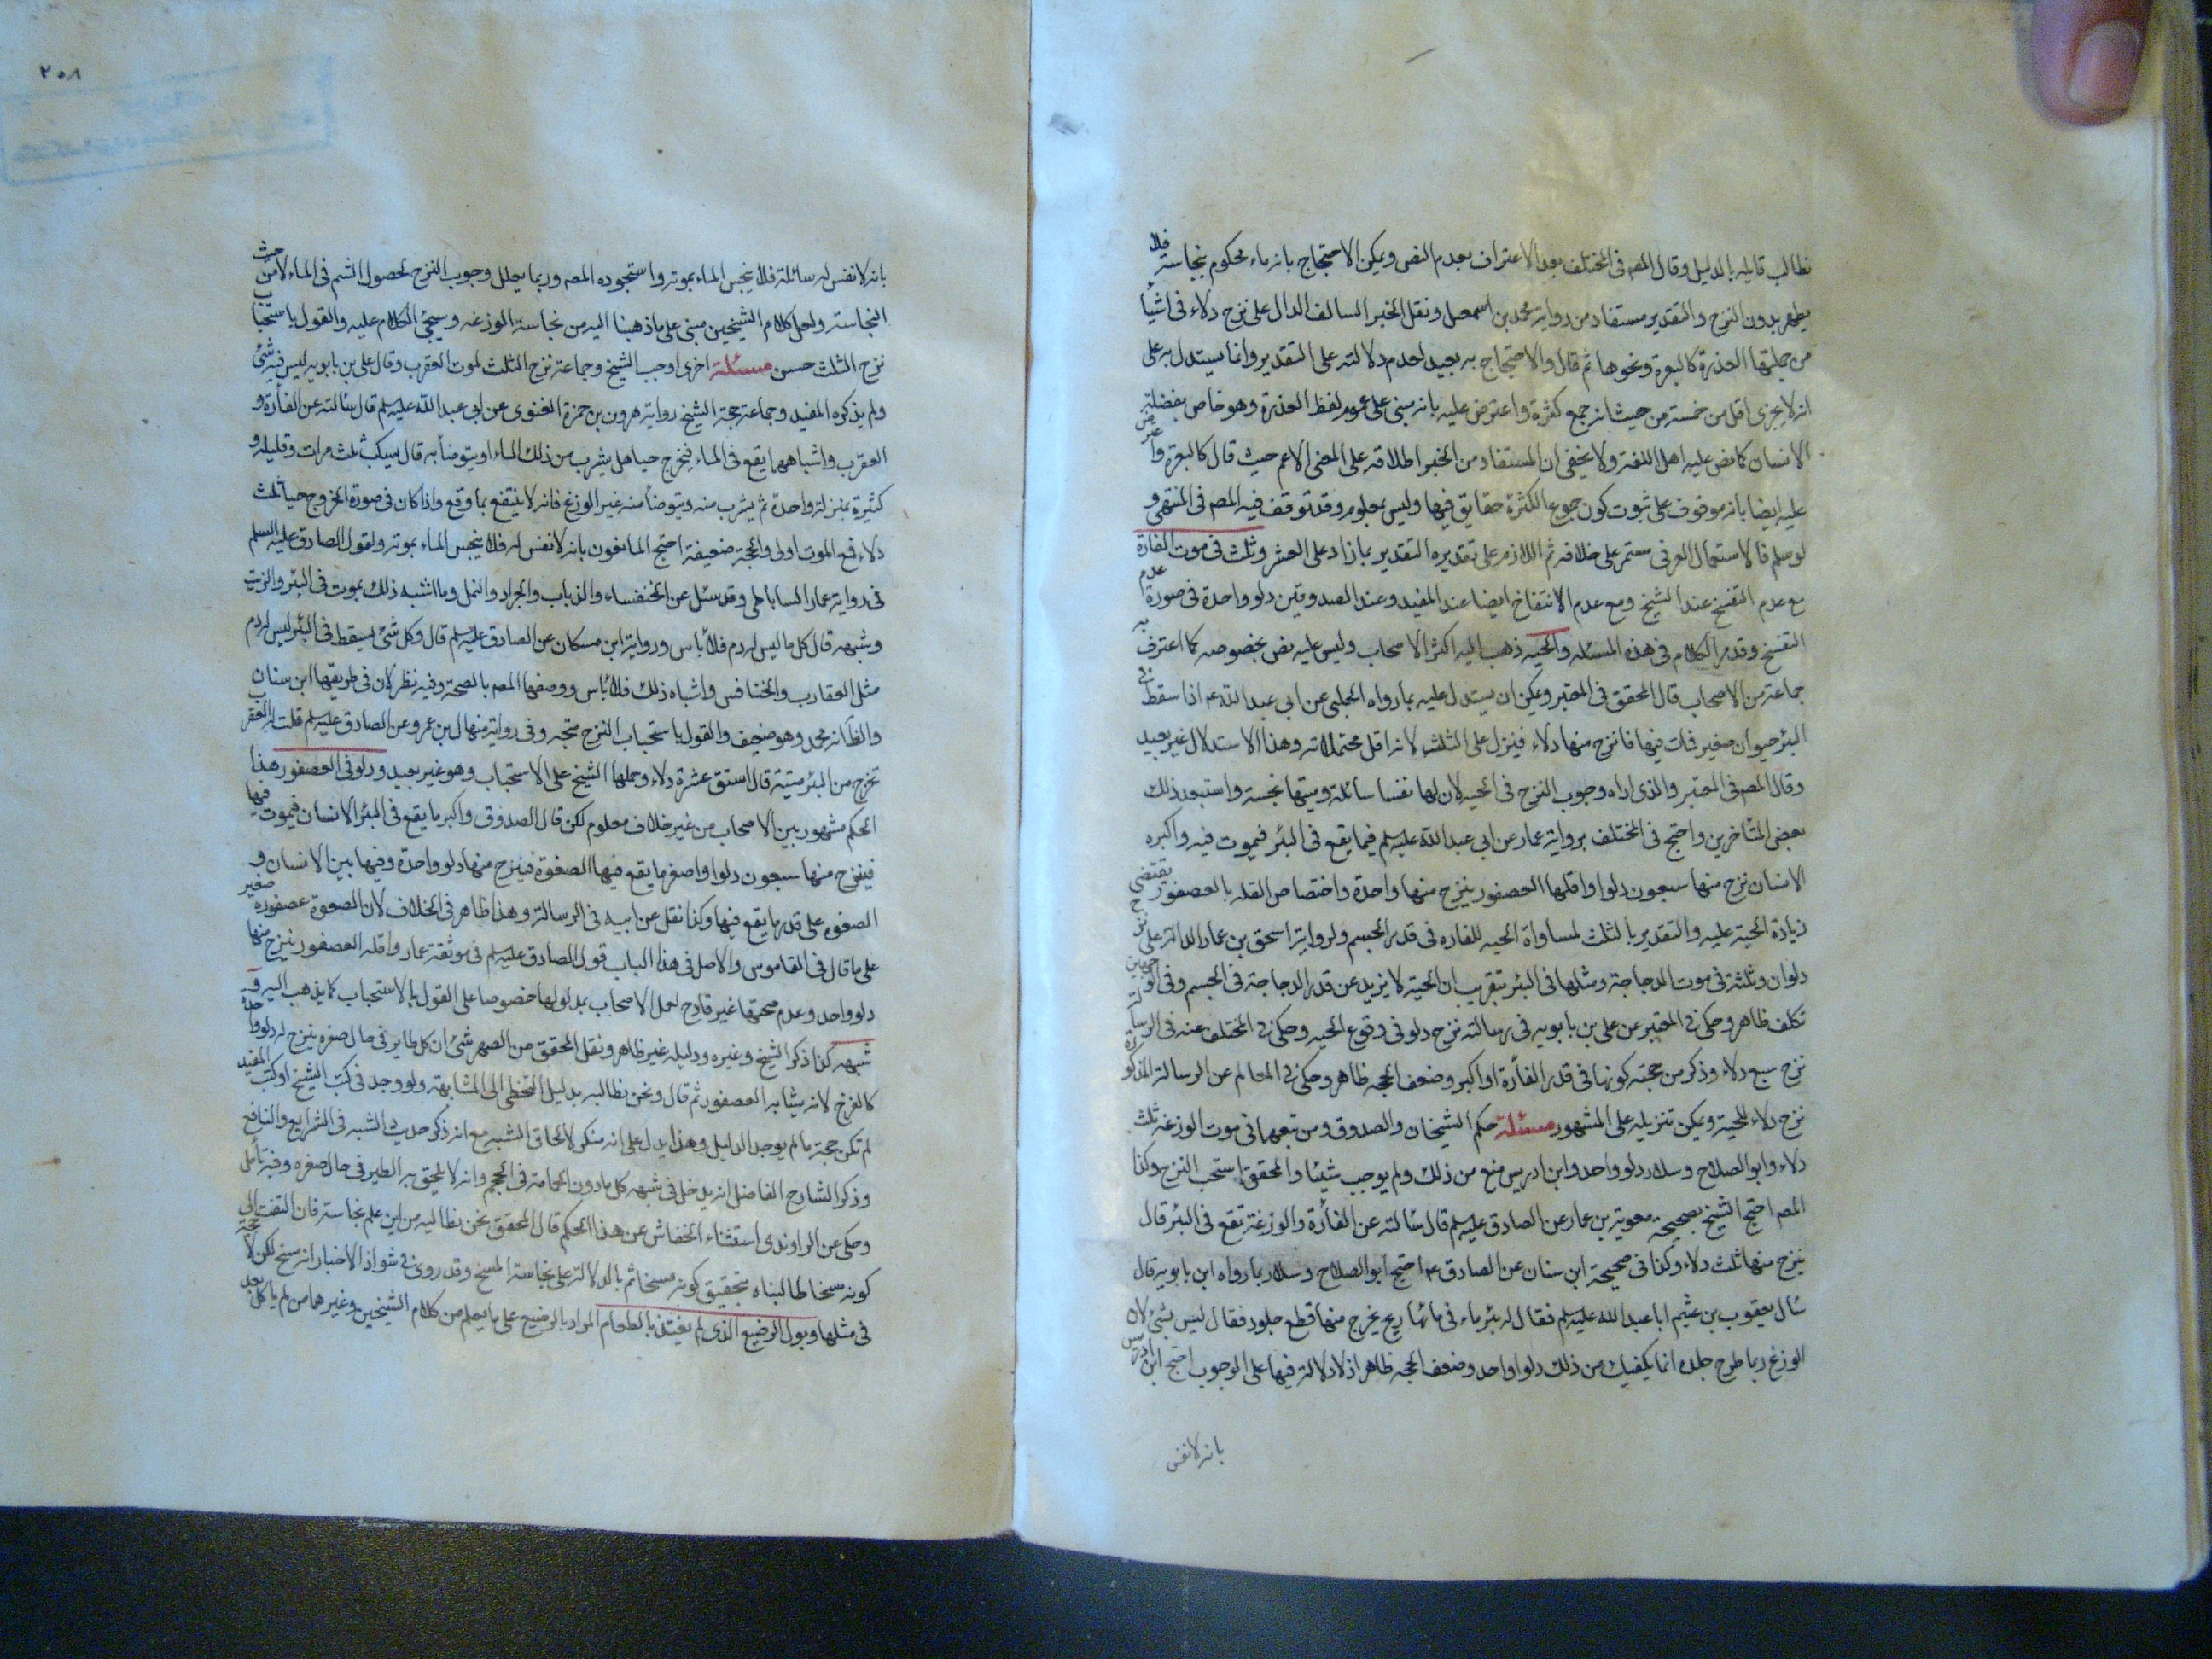 نطالب قايله بالدليل وقال المصه فى المختلف بعد الاعتراف بعدم النص ويمكن الاحتجاج بانه ماء محكوم بنجاسته فلا
يطهر بدون النزح والتقدير مستفاد من رواية محمد بن اسمعيل ونقل الخبر السالف الدال على نزح دلاء فى اشياء
من جملتها العذرة كالبعرة ونحوها ثم قال والاحتجاج به بعيد لعدم دلالته على التقدير وانما يستدل به على
انه لا يجزى اقل من خمسة من حيث انه جمع كثرة واعترض عليه بانه مبنى على عموم لفظ العذرة وهو خاص بفضلة
الانسان كما نص عليه اهل اللغة ولا يخفى ان المستفاد من الخبر اطلاقه على المعنى الاعم حيث قال كالبعرة واعترض
عليه ايضا بانه موقوف على ثبوت كون جموع الكثرة حقايق فيها وليس بمعلوم وقد توقف فيه المصه فى المنتهى و
لو سلم فالاستعمال العرفى مستمر على خلافه ثم اللازم على تقديره التقدير بما زاد على العشر وثلث فى موت الفارة
مع عدم التفسخ عند الشيخ ومع عدم الانتفاخ ايضا عند المفيد وعند الصدوقين دلو واحدة فى صورة عدم
التفسخ وقد مر الكلام فى هذه المسئله والحيه ذهب اليه اكثر الاصحاب وليس عليه نص بخصوصه كما اعترف به
جماعة من الاصحاب قال المحقق فى المعتبر ويمكن ان يستدل عليه بما رواه الحلبى عن ابى عبد الله ع اذا سقط فى
البئر حيوان صغير فمات فيها فانزح منها دلاء فينزل على الثلث لانه اقل محتملاته وهذا الاستدلال غير بعيد
وقال المصه فى المعتبر والذى اراه وجوب النزح فى الحيه لان لها نفسا سائلة وميتها نجسة واستبعد ذلك
بعض المتاخرين واحتج فى المختلف برواية عمار عن ابى عبد الله عليه سلم فيما يقع فى البئر فيموت فيه واكبره
الانسان نزح منها سبعون دلوا واقلها العصفور ينزح منها واحدة واختصاص القله بالعصفور يقتضى
زيادة الحية عليه والتقدير بالثلث لمساواة الحيه للفاره فى قدر الجسم ولرواية اسحق بن عمار الدالة على نزح
دلوان وثلثة فى موت الدجاجة ومثلها فى البئر بتقريب ان الحية لا يزيد عن قدر الدجاجة فى الجسم وفى الوجهين
تكلف ظاهر وحكى فى المعتبر عن على بن بابويه فى رسالته نزح دلو فى وقوع الحيه وحكى فى المختلف عنه فى الرسالة
نزح سبع دلاء وذكر من حجته كونها فى قدر الفأرة او اكبر وضعف الحجه ظاهر وحكى فى المعالم عن الرسالة المذكورة
نزح دلاء للحية ويمكن تنزيله على المشهور مسئلة حكم الشيخان والصدوق ومن تبعهما فى موت الوزغة ثلث
دلاء وابو الصلاح وسلار دلو واحد وابن ادريس منع من ذلك ولم يوجب شيئا والمحقق استحب النزح وكذا
المصه احتج الشيخ بصحيحة معوية بن عمار عن الصادق عليه سلم قال سالته عن الفأرة والوزغة تقع فى البئر قال
ينزح منها ثلث دلاء وكذا فى صحيحة ابن سنان عن الصادق ع احتج ابو الصلاح وسلار بما رواه ابن بابويه قال
سال يعقوب بن عثيم ابا عبد الله عليه سلم فقال له بئر ماء فى مائها ريح يخرج منها قطع جلود فقال ليس بشئ لان
الوزغ ربما طرح جلده انما يكفيك من ذلك دلوا واحد وضعف الحجه ظاهر اذ لا دلالة فيها على الوجوب احتج ابن ادريس
بانه لا نفس
٢٥٨
بانه لا نفس له سائلة فلا ينجس الماء بموته واستجوده المصه وربما يعلل وجوب النزح لحصول السم فى الماء لا من حيث
النجاسة ولعل كلام الشيخين مبنى على ماذهبنا اليه من نجاسة الوزغه وسيجئ الكلام عليه والقول باستحباب
نزح الثلث حسن مسئلة اخرى اوجب الشيخ وجماعة نزح الثلث لموت العقرب وقال على بن بابويه ليس فيه شئ
ولم يذكره المفيد وجماعة حجة الشيخ رواية هرون بن حمزة الغنوى عن ابى عبد الله عليه سلم قال سالته عن الفأرة و
العقرب واشباههما يقع فى الماء فيخرج حيا هل يشرب من ذلك الماء او يتوضأ به قال يسكب ثلث مرات وقليله و
كثيره بمنزلة واحدة ثم يشرب منه ويتوضأ منه غير الوزغ فانه لا ينتفع بما وقع واذا كان فى صورة الخروج حيا ثلث
دلاء فمع الموت اولى والحجة ضعيفة احتج المانعون بانه لا نفس له فلا ينجس الماء بموته ولقول الصادق عليه السلم
فى رواية عمار الساباطى وقد سئل عن الخنفساء والذباب والجراد والنمل وما اشبه ذلك يموت فى البئر والزيت
وشبهه قال كل ما ليس له دم فلا بأس ورواية ابن مسكان عن الصادق عليه سلم قال وكل شئ يسقط فى البئر ليس له دم
مثل العقارب والخنافس واشباه ذلك فلا بأس ووصفها المصه بالصحة وفيه نظر لان فى طريقها ابن سنان
والظ انه محمد وهو ضعيف والقول باستحباب النزح متجه وفى رواية منهال بن عمرو عن الصادق عليه سلم قلت له العقرب
تخرج من البئر ميتة قال استق عشرة دلاء وحملها الشيخ على الاستحباب وهو غير بعيد ودلو فى العصفور هذا
الحكم مشهور بين الاصحاب من غير خلاف معلوم لكن قال الصدوق واكبر ما يقع فى البئر الانسان فيموت فيها
فينزح منها سبعون دلوا واصغر ما يقع فيها الصعوة فينزح منها دلو واحدة وفيما بين الانسان و
الصعوه على قدر ما يقع فيها وكذا نقل عن ابيه فى الرسالة وهذا ظاهر فى الخلاف لان الصعوة عصفورة صغير
على ما قال فى القاموس والاصل فى هذا الباب قول الصادق عليه سلم فى موثقة عمار واقله العصفور ينزح منها
دلو واحد وعدم صحتها غير قادح لعمل الاصحاب بمدلولها خصوصا على القول بالاستحباب كما يذهب اليه و
شبهه كذا ذكر الشيخ وغيره ودليله غير ظاهر ونقل المحقق من الصهرشتى ان كل طاير فى حال صغره ينزح له دلو واحدة
كالفرخ لانه يشابه العصفور ثم قال ونحن نطالبه بدليل التخطى الى المشابهة ولو وجد فى كتب الشيخ او كتب المفيد
لم تكن حجة ما لم يوجد الدليل وهذا يدل على انه منكر لالحاق الشبه مع انه ذكر حديث الشبه فى الشرايع والنافع
وذكر الشارح الفاضل انه يدخل فى شبهه كل ما دون الحمامة فى الحجم وانه لا يلحق به الطير فى حال صغره وفيه تأمل
وحكى عن الراوندى استثناء الخفاش عن هذا الحكم قال المحقق نحن نطالبه من اين علم نجاسته فان التفت الى
كونه مسخا طالبناه بتحقيق كونه مسخا ثم بالدلالة على نجاسة المسخ وقد روى فى شواذ الاخبار انه مسخ لكن لا حجة
فى مثلها وبول الرضيع الذى لم يغتذ بالطعام المراد بالرضيع على ما يعلم من كلام الشيخين وغيرهما من لم ياكل بعد